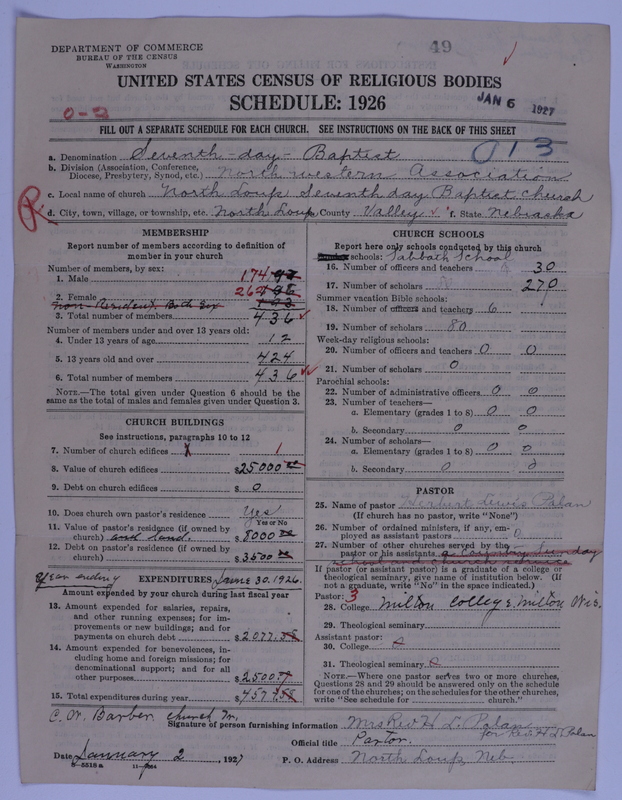 49
DEPARTMENT OF COMMERCE
BUREAU OF THE CENSUS
WASHINGTON
UNITED STATES CENSUS OF RELIGIOUS BODIES
SCHEDULE: 1926
JAN 6 1927
0-2
FILL OUT A SEPARATE SCHEDULE FOR EACH CHURCH. SEE INSTRUCTIONS ON THE BACK OF THIS SHEET
a. Denomination Seventh-day-Baptist 013
b. Division (Association, Conference, Diocese, Presbytery, Synod, etc.) North western Association
c. Local name of church North Loup Seventh day Baptist church
R
d. City, town, village, or township, etc. North Loup County Valley f. State Nebraska
MEMBERSHIP
Report number of members according to definition of
member in your church
Number of members, by sex:
1. Male 174
2. Female 262
Non-Resident Both Sex
3. Total number of members 436
Number of members under and over 13 years old:
4. Under 13 years of age 12
5. 13 years old and over 424
6. Total number of members 436
NOTE.—The total given under Question 6 should be
the same as the total of males and females given under Question 3.
CHURCH BUILDINGS
See instructions, paragraphs 10 to 12
7. Number of church edifices 1
8. Value of church edifices $25000
9. Debt on church edifices $0
10. Does church own pastor's residence? Yes
Yes or No
11. Value of pastor's residence (if owned by
church) and land. $8000
12. Debt on pastor's residence (if owned by
church) $3500
Year ending EXPENDITURES June 30. 1926.
Amount expended by your church during last fiscal year
13. Amount expended for salaries, repairs,
and other running expenses; for im-
provements or new buildings; and for
payments on church debt $2077.58
14. Amount expended for benevolences, in-
cluding home and foreign missions; for
denominational support; and for all
other purposes $2500
15. Total expenditures during year $4577.58
CHURCH SCHOOLS
Report here only schools conducted by this church
schools: Sabbath School
16. Number of officers and teachers 30
17. Number of scholars 270
Summer vacation Bible schools:
18. Number of officers and teachers 6
19. Number of scholars 80
Week-day religious schools:
20. Number of officers and teachers 0 0
21. Number of scholars 0
Parochial schools:
22. Number of administrative officers 0 0
23. Number of teachers—
a. Elementary (grades 1 to 8) 0 0
b. Secondary 0 0
24. Number of scholars—
a. Elementary (grades 1 to 8) 0 0
b. Secondary 0 0
PASTOR
25. Name of pastor Herbert Lewis Polan
(If church has no pastor, write "None")
26. Number of ordained ministers, if any, em-
ployed as assistant pastors 0
27. Number of other churches served by the
pastor or his assistants a Country Sunday
school and church service
If pastor (or assistant pastor) is a graduate of a college or
theological seminary, give name of institution below. (If
not a graduate, write "No" in the space indicated.)
Pastor: 3
28. College Milton College, Milton Wis.
29. Theological seminary
Assistant pastor:
30. College
31. Theological seminary
NOTE.—Where one pastor serves two or more churches,
Questions 28 and 29 should be answered only on the schedule
for one of the churches; on the schedules for the other churches,
write "See schedule for church."
C. W. Barber church Tr.
Signature of person furnishing information Mrs Rev H L. Polan
for Rev. H L. Polan
Official title Pastor.
Date January 2, 1927 P. O. Address North Loup, Neb.
8-5518 a